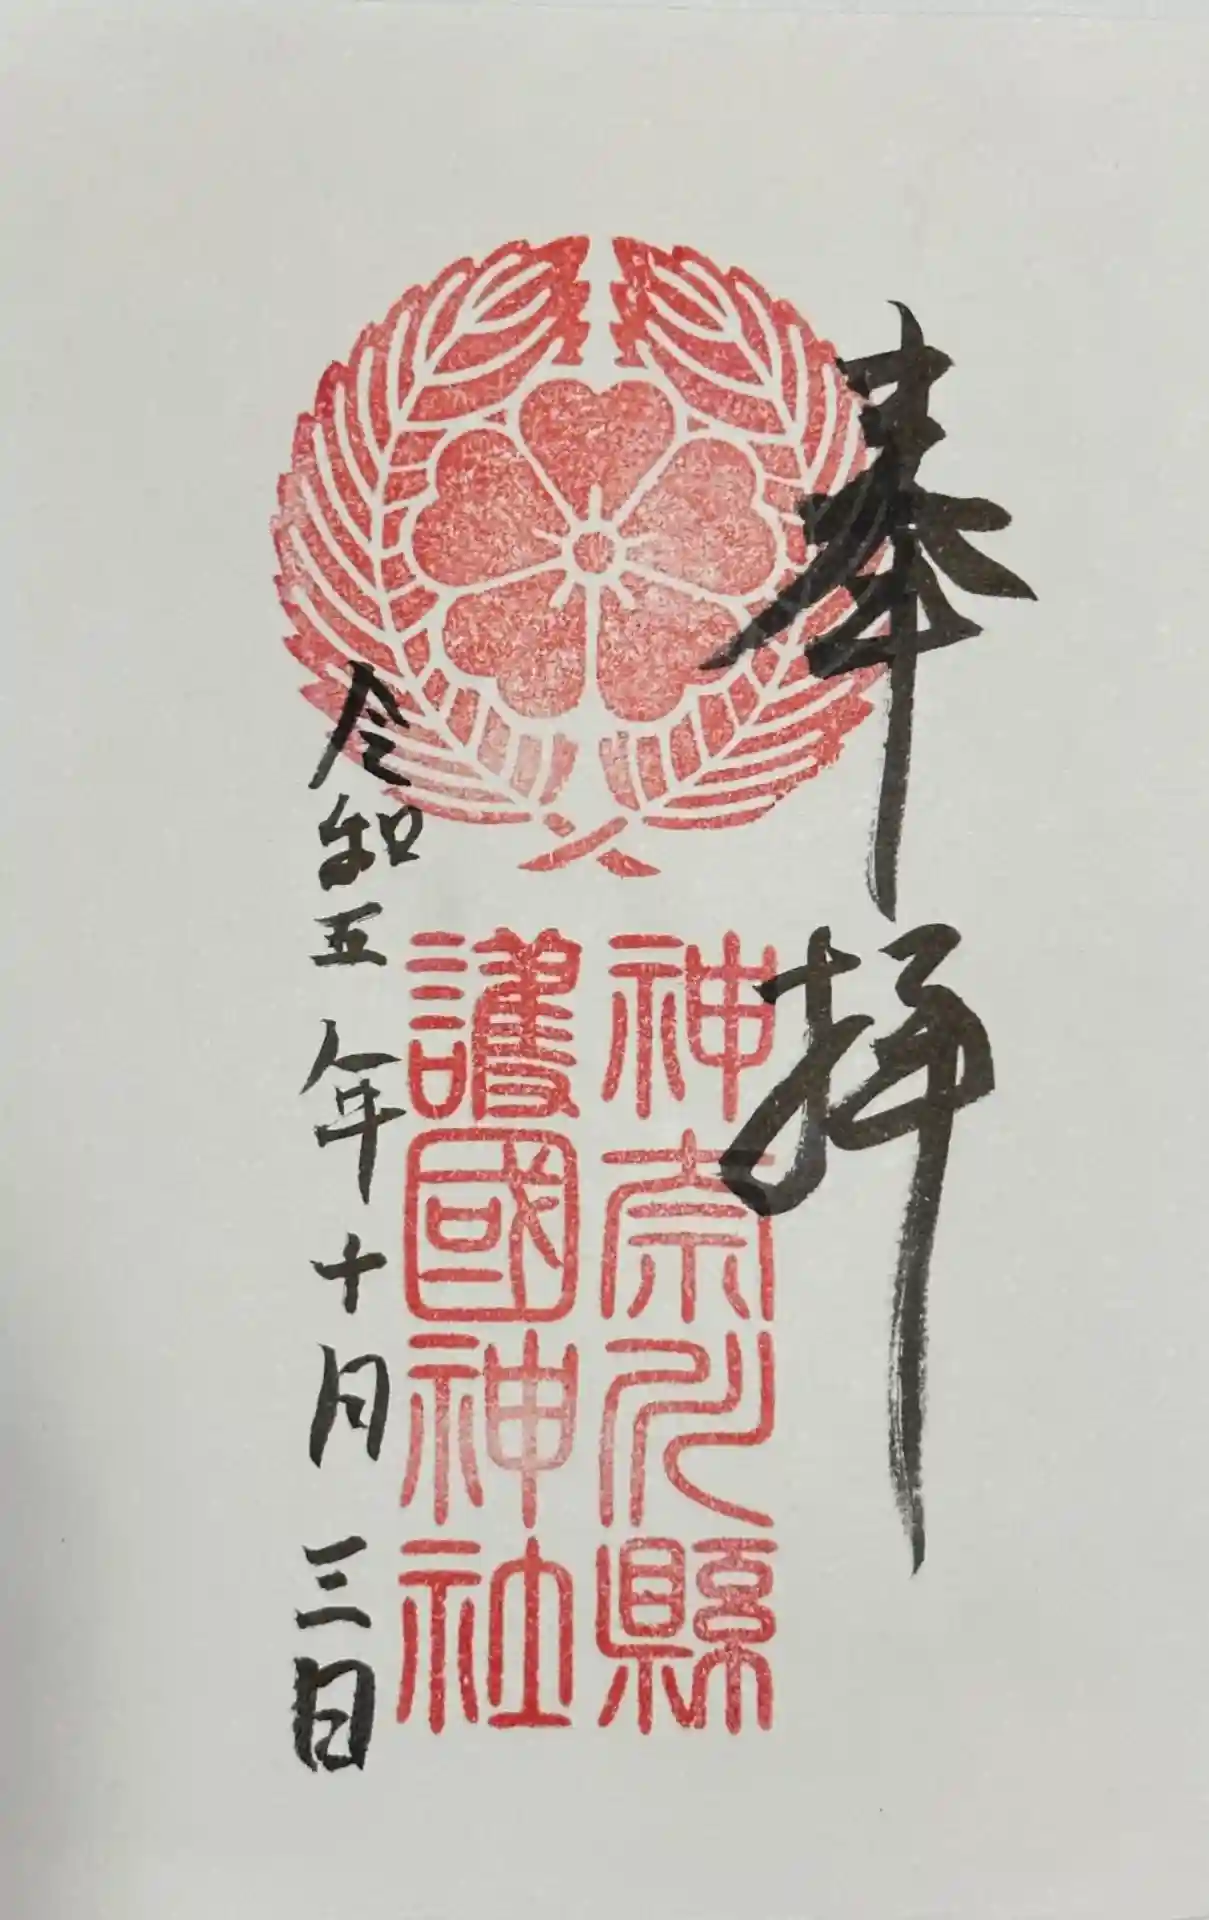 奉拝
神奈川縣
護國神社
令和五年十月三日